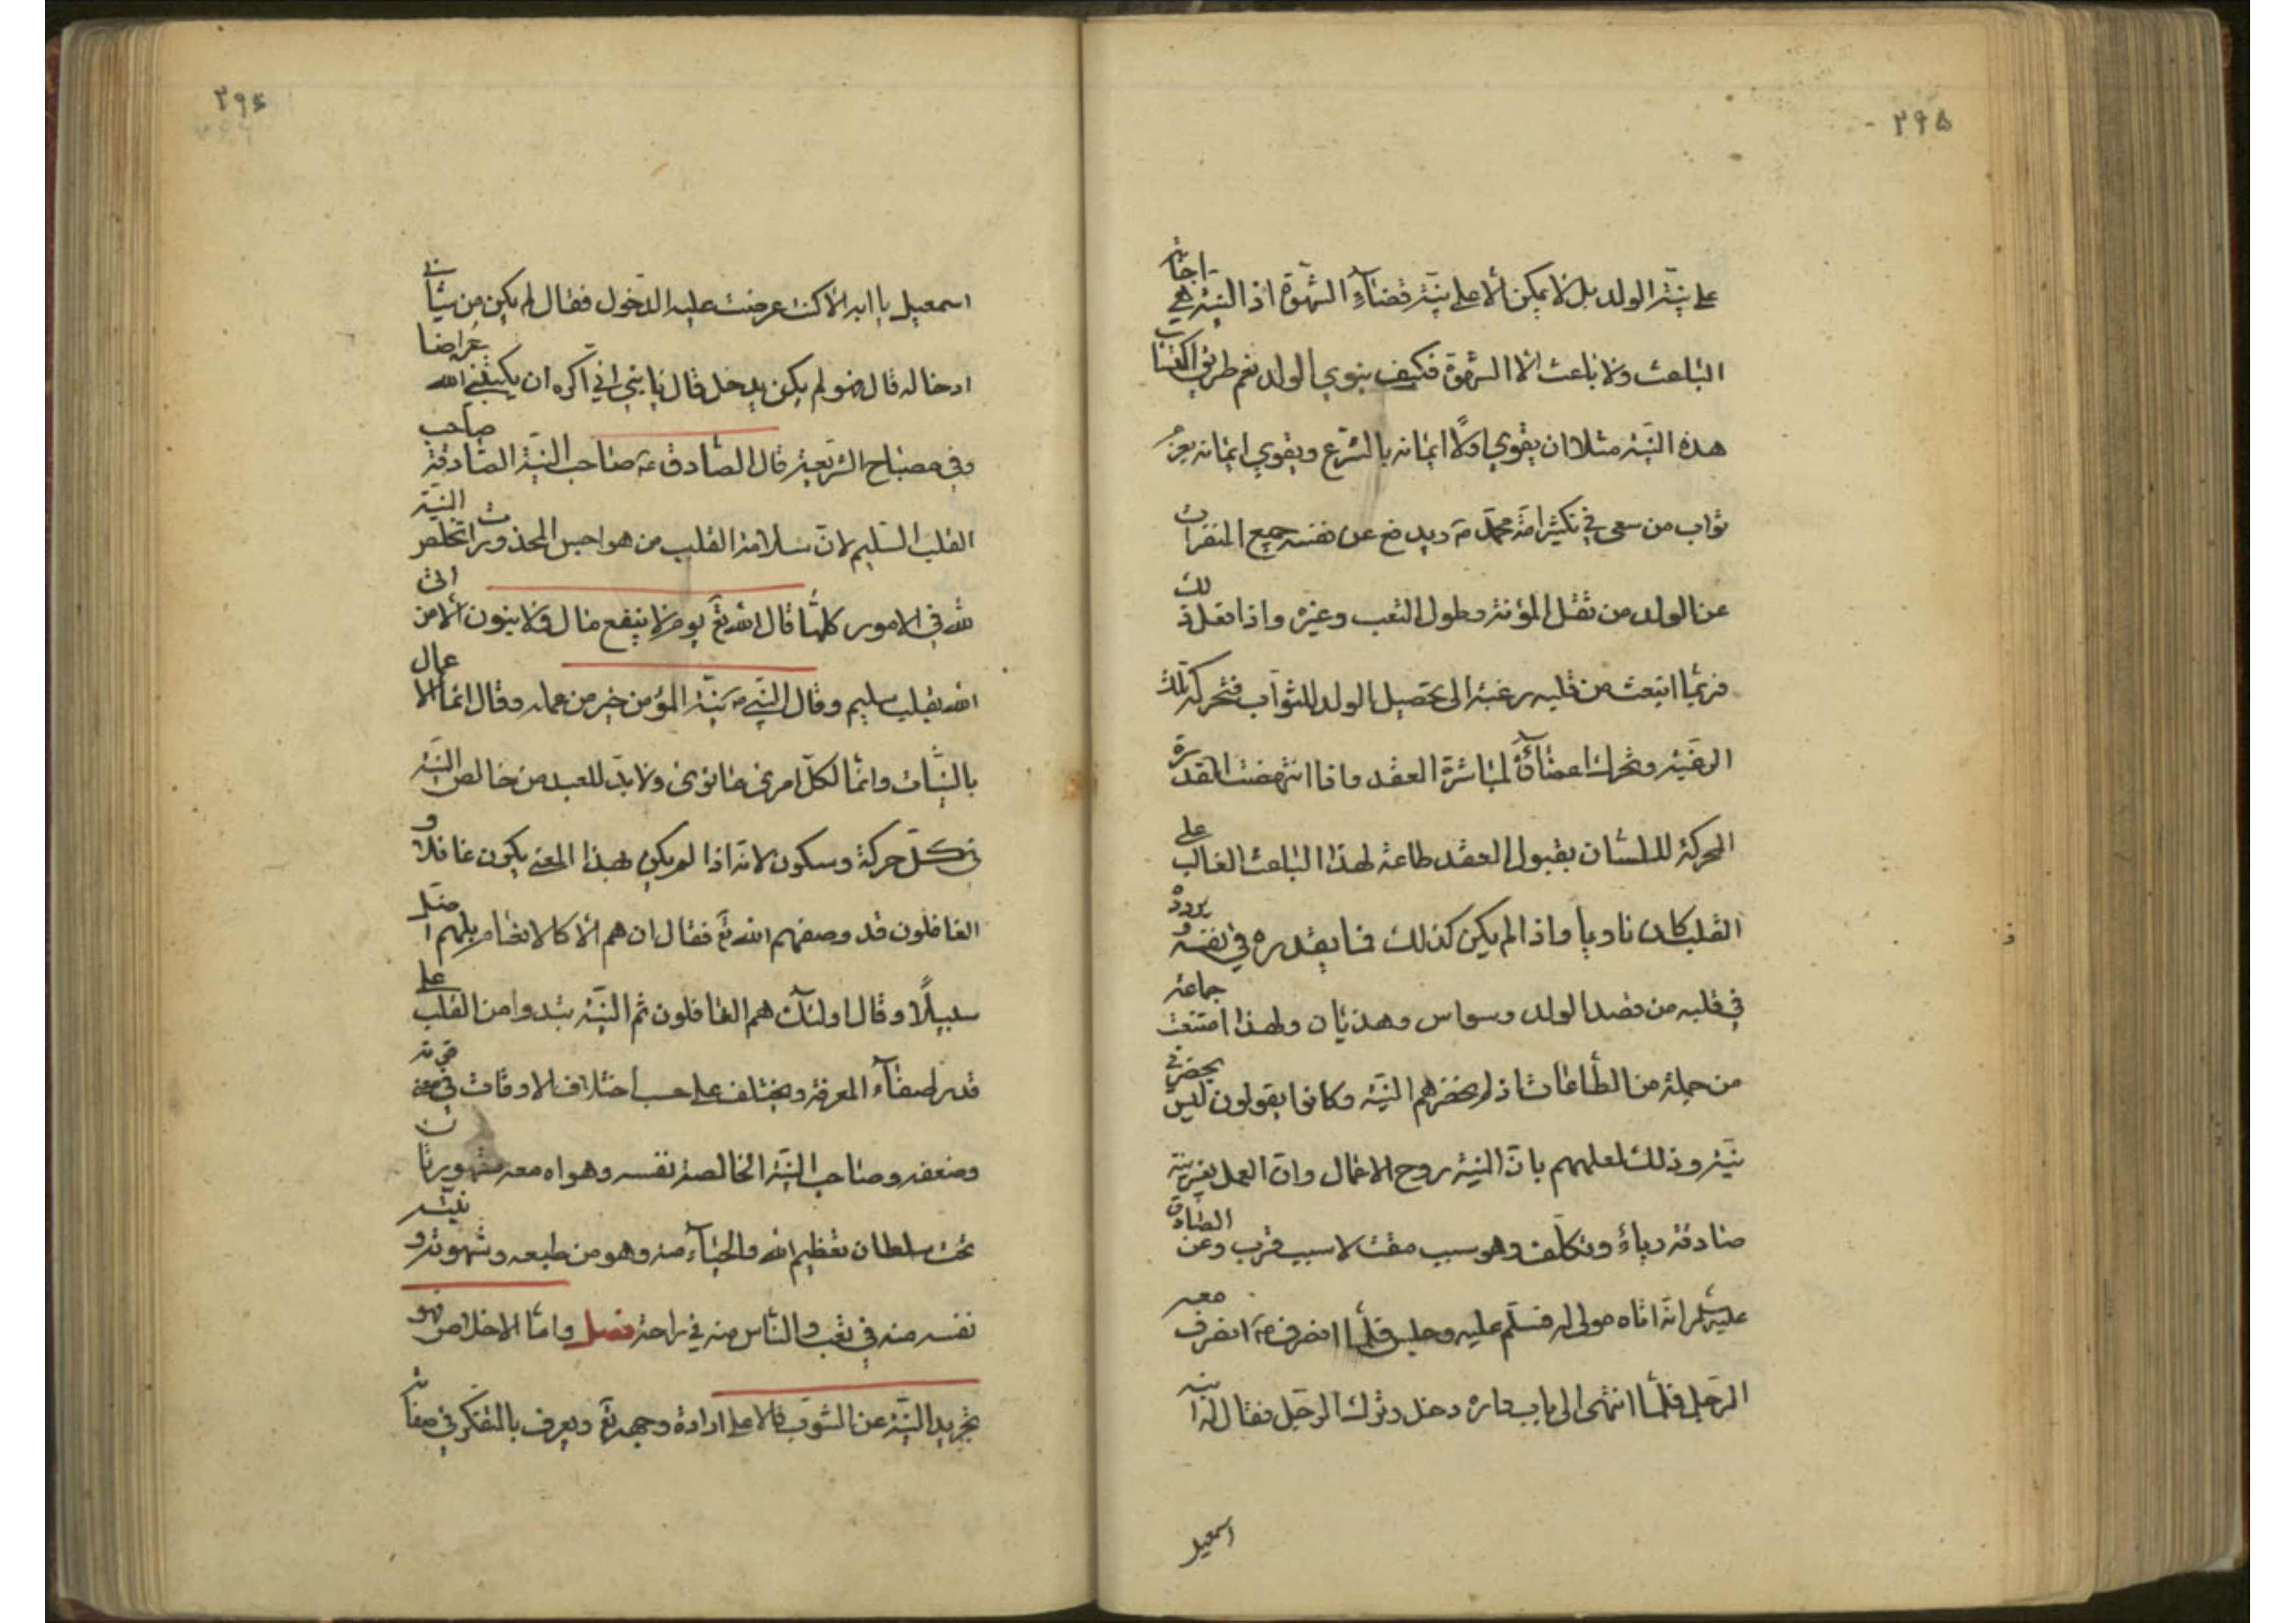 ۲۹۵
على نيّة الولد بل لا يمكن الا على نيّة قضاء الشهوة اذ النيّة هي اجابة
الباعث ولا باعث الا الشهوة فكيف ينوي الولد نعم طريق اكتساب
هذه النيّة مثلا ان يقوي اولًا ايمانه بالشرع ويقوي ايمانه بعظم
ثواب من سعى في تكثير امّة محمّد ص ويدفع عن نفسه جميع المنفرات
عن الولد من ثقل المؤنة وطول التعب وغيره واذا فعل ذلك
فربما انبعث من قلبه رغبة الى تحصيل الولد للثواب فتحركه تلك
الرغبة وتحرك اعضاؤه لمباشرة العقد فاذا انتهضت القدرة
المحركة للسان بقبول العقد طاعة لهذا الباعث الغالب على
القلب كان ناويا واذا لم يكن كذلك فما يقدره في نفسه ويردده
في قلبه من قصد الولد وسواس وهذيان ولهذا امتنعت جماعة
من جملة من الطاعات اذ لم يحضرهم النيّة وكانوا يقولون ليس يحضرني
نيّة وذلك لعلمهم بانّ النيّة روح الاعمال وانّ العمل بغير نيّة
صادقة رياء وتكلّف وهو سبب مقت لا سبب قرب وعن الصّادق
عليه السلم انّه اتاه مولى له فسلّم عليه وجلس فلمّا انصرف ع انصرف معه
الرّجل فلمّا انتهى الى باب داره دخل وترك الرّجل فقال له ابنه
اسمعيل
۲۹۶
اسمعيل يا ابه الا كنت عرضت عليه الدّخول فقال لم يكن من شأني
ادخاله قال فهو لم يكن يدخل قال يا بنيّ انّي اكره ان يكتبني الله عراضا
وفي مصباح الشريعة قال الصّادق ع صاحب النيّة الصّادقة صاحب
القلب السّليم لانّ سلامة القلب من هواجس المحذورات تخلص النيّة
لله في الامور كلّها قال الله تع يوم لا ينفع مال ولا بنون الا من اتى
الله بقلب سليم وقال النّبي ص نيّة المؤمن خير من عمله وقال انّما الاعمال
بالنيّات وانّما لكلّ امرئ ما نوى ولا بدّ للعبد من خالص النيّة
في كلّ حركة وسكون لانّه اذا لم يكن بهذا المعنى يكون غافلا و
الغافلون قد وصفهم الله تع فقال ان هم الا كالانعام بل هم اضلّ
سبيلًا وقال اولئك هم الغافلون ثم النيّة تبدوا من القلب على
قدر صفاء المعرفة ويختلف على حسب اختلاف الاوقات في معنى قوته
وضعفه وصاحب النيّة الخالصة نفسه وهواه معه مقهورتان
تحت سلطان تعظيم الله والحياء منه وهو من طبعه وشهوته ومنيته
نفسه منه في تعب والنّاس منه في راحة فصل وامّا الاخلاص فهو
تجريد النيّة عن الشوب فالاعلى ارادة وجهه تع ويعرف بالتفكر في صفاته